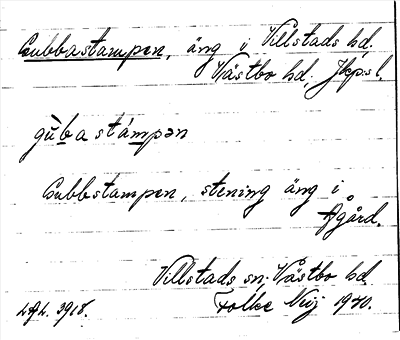 Gubbastampen, äng i Villstads hd.
Västbo hd, Jkpsl.
gùba stámpən
Gubbstampen, stening äng i
Ågård.
Villstads sn, Västbo hd.
LAL. 3918.
Folke Nuij 1940.